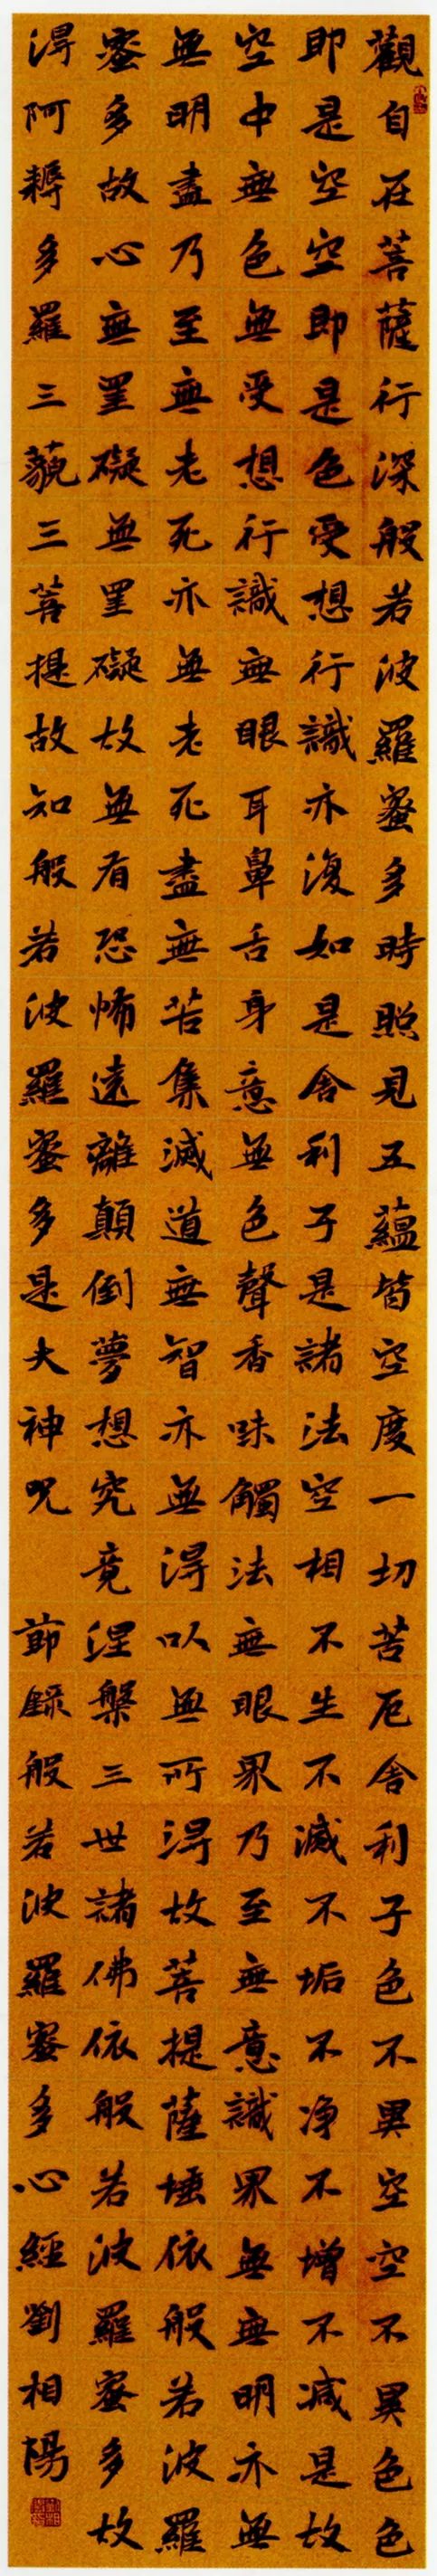 觀自在菩薩行深般若波羅蜜多時照見五蘊皆空度一切苦厄舍利子色不異空空不異色色
即是空空即是色受想行識亦復如是舍利子是諸法空相不生不滅不垢不淨不增不減是故
空中無色無受想行識無眼耳鼻舌身意無色聲香味觸法無眼界乃至無意識界無無明亦無
無明盡乃至無老死亦無老死盡無苦集滅道無智亦無得以無所得故菩提薩埵依般若波羅
蜜多故心無罣礙無罣礙故無有恐怖遠離顛倒夢想究竟涅槃三世諸佛依般若波羅蜜多故
得阿耨多羅三藐三菩提故知般若波羅蜜多是大神咒 節錄般若波羅蜜多心經劉相陽